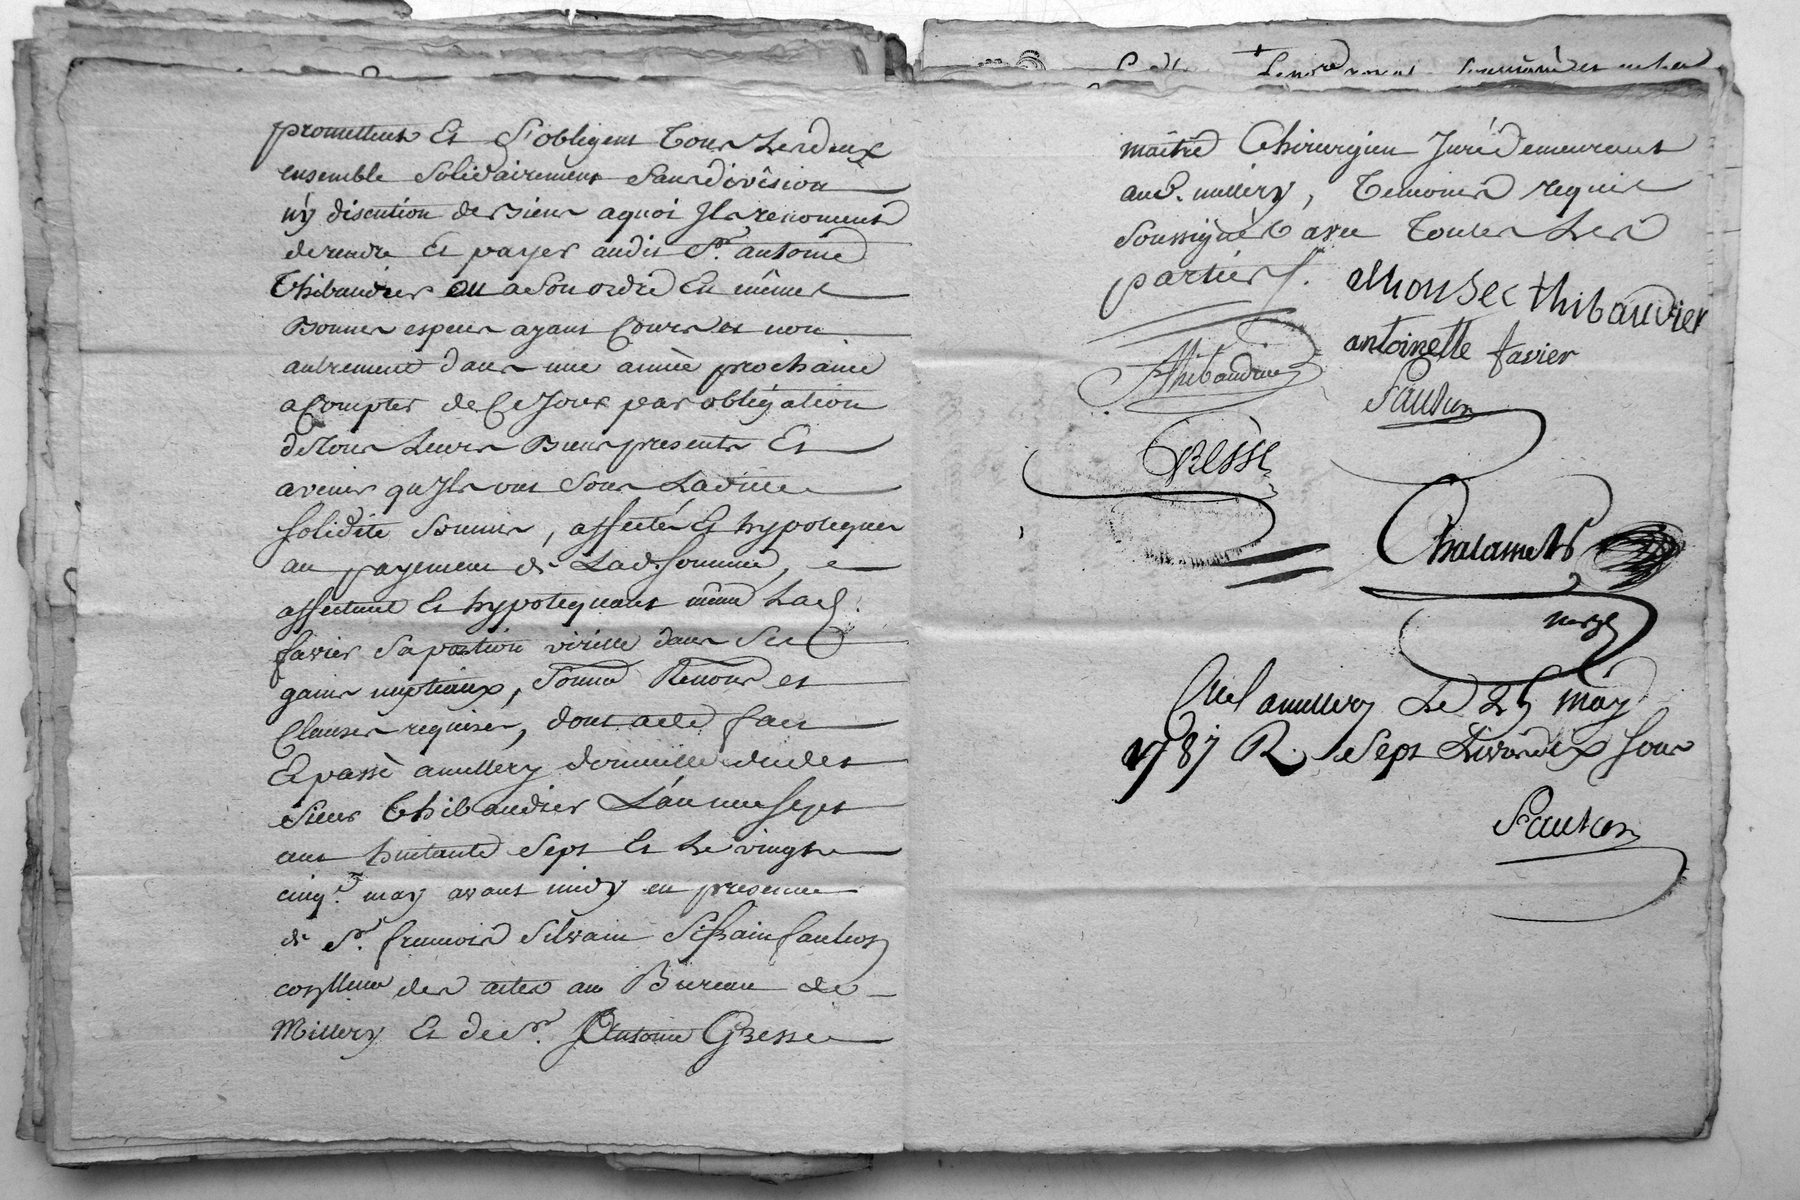 promettent et s'obligent tous les deux
ensemble solidairement sans division
ny discution de biens a quoi ils renoncent
de rendre et payer audit Sr. antoine
Thibaudier ou a son ordre en mêmes
Bonnes especes ayant Cours et non
autrement dans une année prochaine
a compter de Ce jour par obligation
de tous Leurs Biens presents Et
avenir qu'ils ont sous Ladite
solidité soumis, affectés Et hypotequés
au payement de Lad. somme,
affectant Et hypotequant même Lad.
favier sa portion virille dans ses
gains nuptiaux, soumis Renons et
Clauses requises, dont acte fait
Et passé a millery domicille dudit
sieur Thibaudier L'an mil sept
cent huitante sept Et Le vingt
cinq. may avant midy en presence
de Sr. françois Silvain
des actes au Bureau de
Millery Et de Sr. Antoine Gresse
maitre Chirurgien Juré demeurant
aud. millery, Temoins requis
soussignés avec Toutes Les
parties.
thibaudier
antoinette favier
Thibaudier
Gresse
Chalamet
a millery Le 25 may
1787 R. sept Livres dix sous